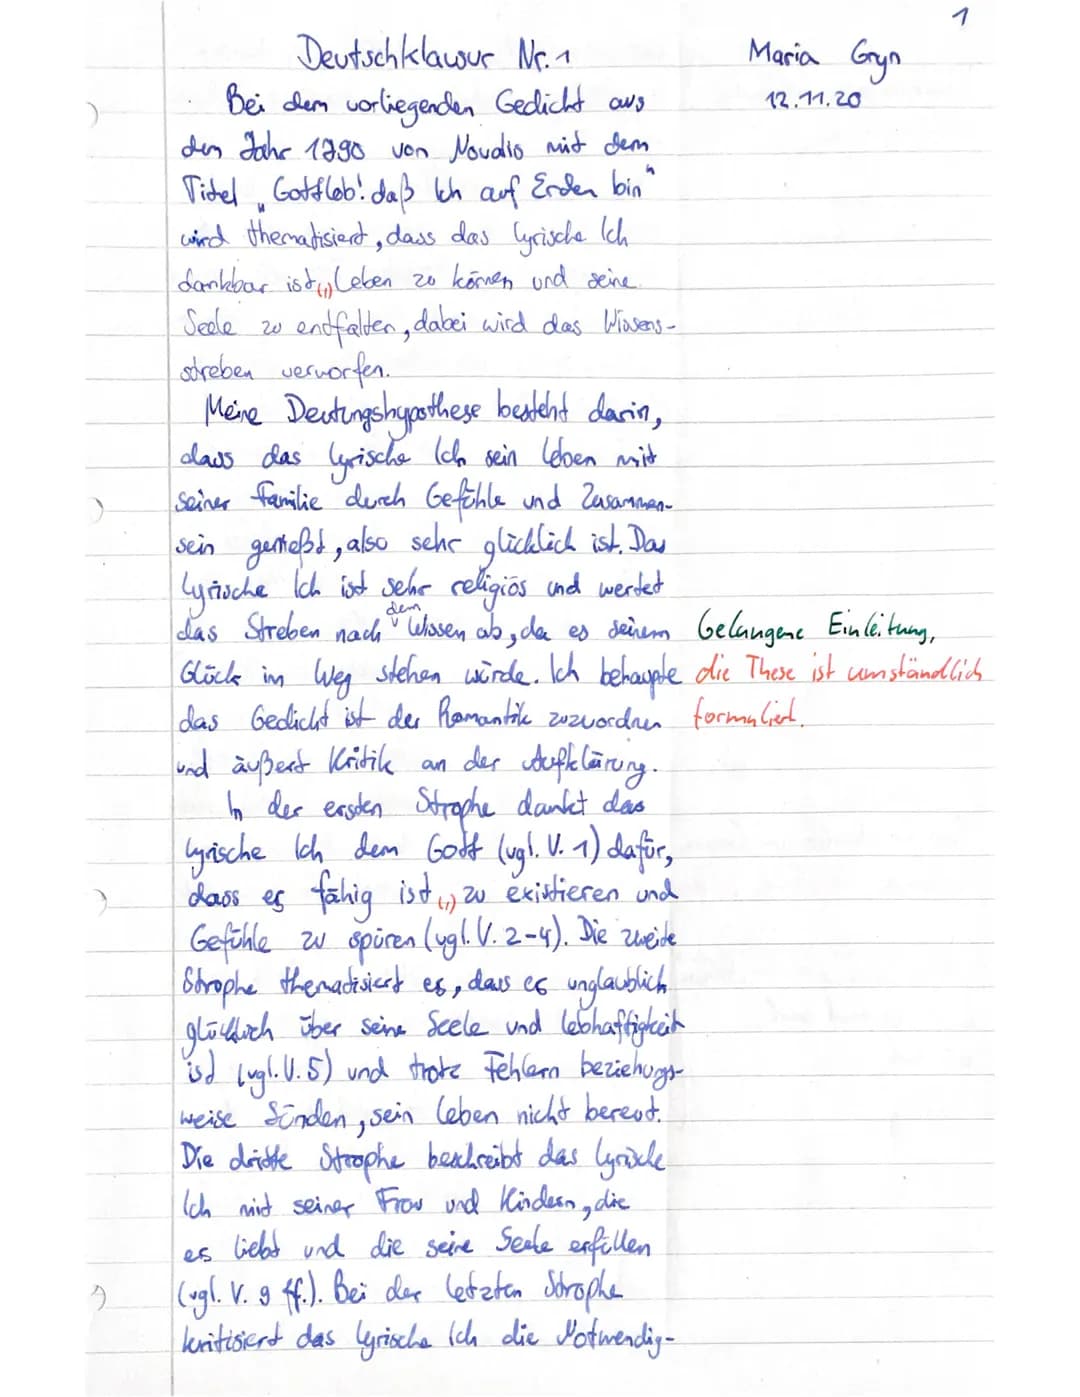 1
Deutschklausur Nr. 1
Maria Gryn
12.11.20
Bei dem vorliegenden Gedicht aus
den Jahr 1790 von Novalis mit dem
Titel „Gottlob! daß Ich auf Erden bin"
wird thematisiert, dass das lyrische Ich
dankbar ist(,) Leben zu können und seine
Seele zu entfalten, dabei wird das Wissens-
streben verworfen.
Meine Deutungshypothese besteht darin,
dass das lyrische Ich sein Leben mit
seiner Familie durch Gefühle und Zusammen-
sein genießt, also sehr glücklich ist. Das
lyrische Ich ist sehr religiös und wertet
das Streben nach dem Wissen ab, da es seinem
Glück im Weg stehen würde. Ich behaupte
das Gedicht ist der Romantik zuzuordnen
und äußert Kritik an der Aufklärung.
Gelungene Einleitung,
die These ist umständlich
formuliert.
In der ersten Strophe dankt das
lyrische Ich dem Gott (vgl. V. 1) dafür,
dass es fähig ist(,) zu existieren und
Gefühle zu spüren (vgl. V. 2-4). Die zweite
Strophe thematisiert es, dass es unglaublich
glücklich über seine Seele und lebhaftigkeit
ist (vgl. V. 5) und trotz Fehlern beziehungs-
weise Sünden, sein Leben nicht bereut.
Die dritte Strophe beschreibt das lyrische
Ich mit seiner Frau und Kindern, die
es liebt und die seine Seele erfüllen
(vgl. V. 9 ff.). Bei der letzten Strophe
kritisiert das lyrische Ich die Notwendig-